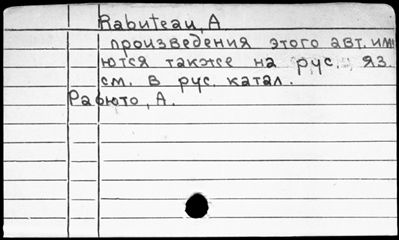 Rabuteau, A
произведения этого авт. име
ются также на рус. яз.
см. в рус. катал.
Рабюто, А.